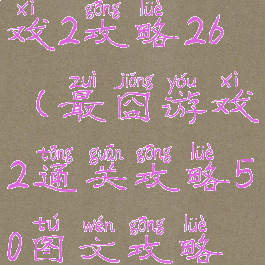 xì gōng lüè
戏2攻略26
zuì jiǒng yóu xì
(最囧游戏
tōng guān gōng lüè
2通关攻略5
tú wén gōng lüè
0图文攻略